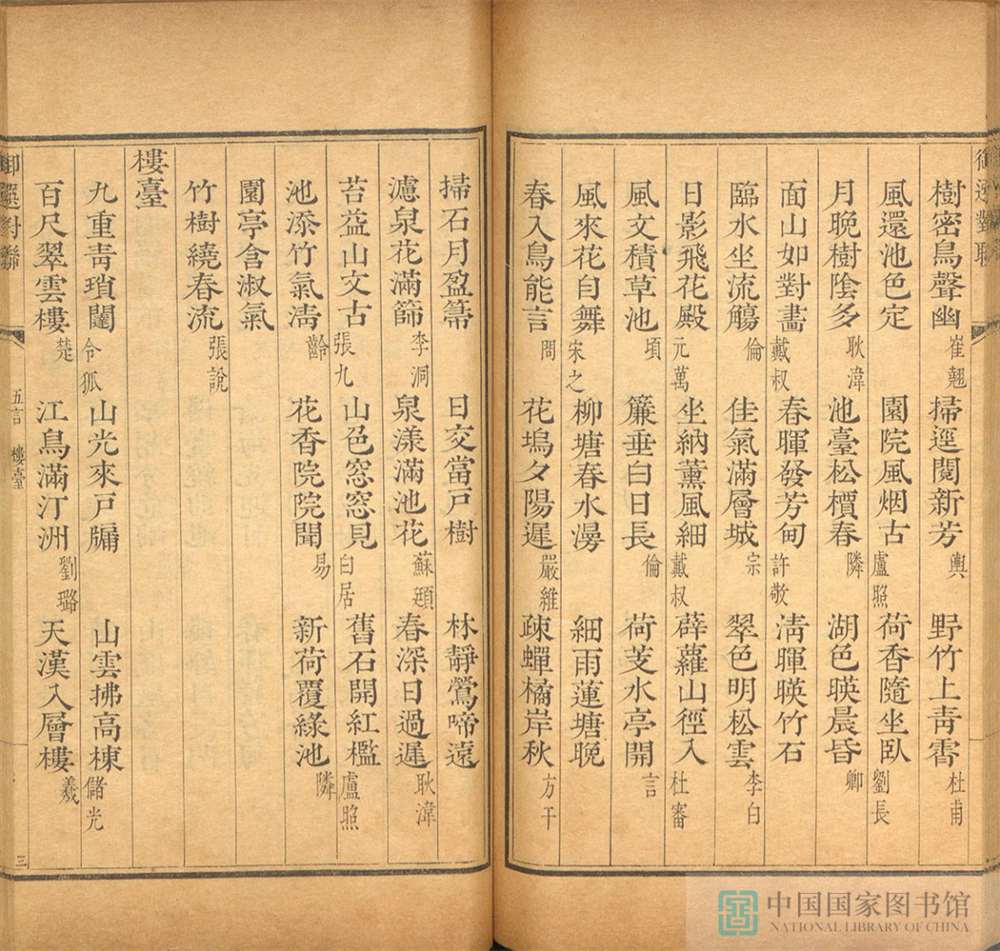 御選對聯
樹密鳥聲幽 崔翹 掃逕閱新芳 輿 野竹上青霄 杜甫
風還池色定 園院風烟古 盧照 荷香隨坐臥 劉長
月晚樹陰多 耿湋 池臺松檟春 隣 湖色暎晨昏 卿
面山如對畵 戴叔 春暉發芳甸 許敬 清暉暎竹石
臨水坐流觴 倫 佳氣滿層城 宗 翠色明松雲 李白
日影飛花殿 元萬 坐納薰風細 戴叔 薜蘿山徑入 杜審
風文積草池 頃 簾垂白日長 倫 荷芰水亭開 言
風來花自舞 宋之 柳塘春水漫 細雨蓮塘晚
春入鳥能言 問 花塢夕陽遲 嚴維 疎蟬橘岸秋 方干
掃石月盈箒 日交當戶樹 林靜鶯啼遠
濾泉花滿篩 李洞 泉漾滿池花 蘇頲 春深日過遲 耿湋
苔益山文古 張九 山色窓窓見 白居 舊石開紅檻 盧照
池添竹氣清 齡 花香院院聞 易 新荷覆綠池 隣
園亭含淑氣
竹樹繞春流 張說
樓臺
九重青瑣闥 令狐 山光來戶牖 山雲拂高棟 儲光
百尺翠雲樓 楚 江鳥滿汀洲 劉璐 天漢入層樓 羲
御選對聯 五言 樓臺 三
中国国家图书馆
NATIONAL LIBRARY OF CHINA